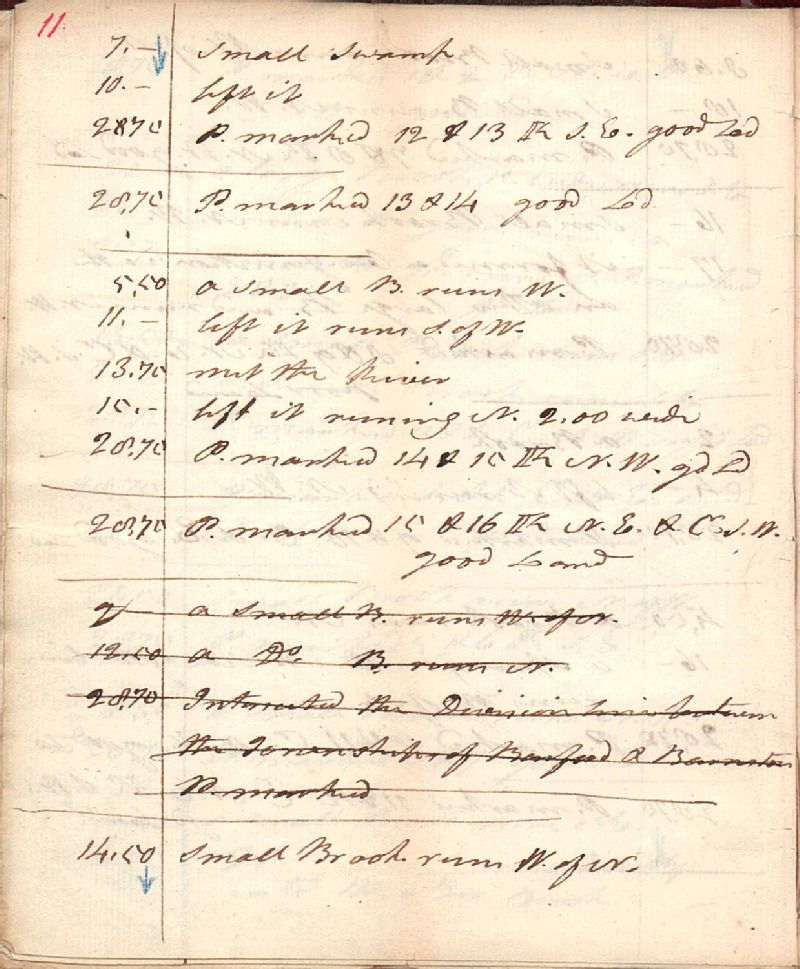 11
7.– small swamp
10.– left it
28.70 P. marked 12 & 13 S. E. good Ld
28.70 P. marked 13 & 14 good Ld
5.50 a small B. runs W.
11.– left it runs S. of W.
13.70 met the River
15.– left it runing N. 2.00 wide
28.70 P. marked 14 & 15 N. W. gd Ld
28.70 P. marked 15 & 16 N. E. & S. W.
good Land
a small B. runs W. of N.
12.50 a Do. B. runs N.
28.70 Intersected the Division line between
the Townships of & Barnston
P. marked
14.50 small Brook runs W. of N.